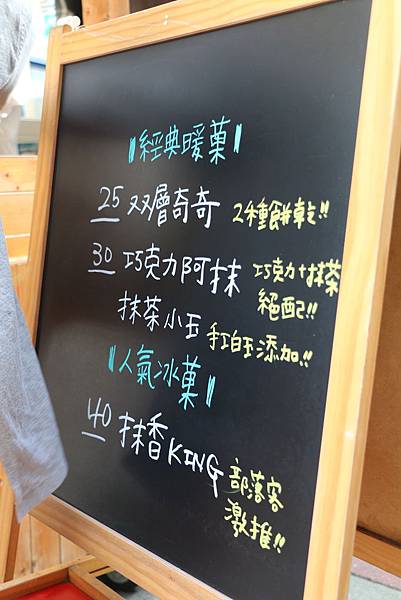 〞經典暖菓〞
25 双層奇奇 2種餅乾!!
30 巧克力阿抹 巧克力+抹茶
絕配!!
抹茶小玉 紅白玉添加!!
〞人氣冰菓〞
40 抹香KING 部落客
激推!!